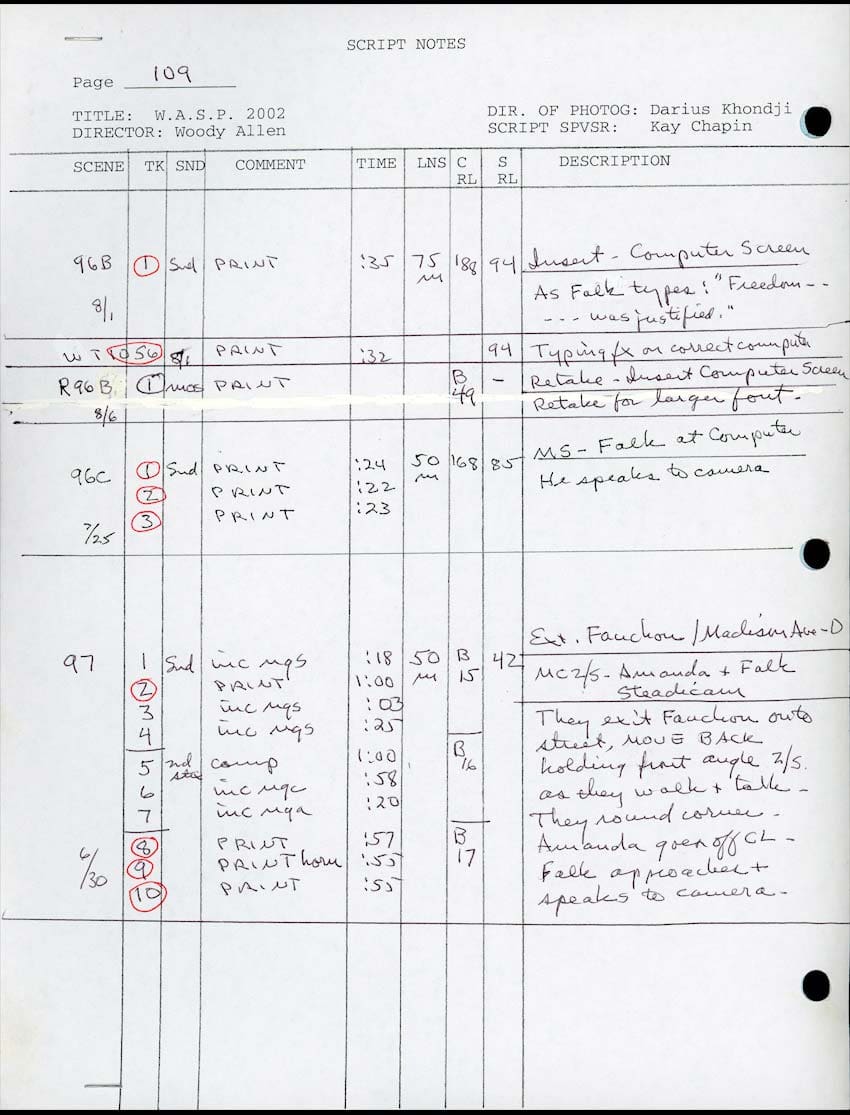 SCRIPT NOTES
Page 109
TITLE: W.A.S.P. 2002 DIR. OF PHOTOG: Darius Khondji
DIRECTOR: Woody Allen SCRIPT SPVSR: Kay Chapin
SCENE TK SND COMMENT TIME LNS C RL S RL DESCRIPTION
96B 1 Snd PRINT :35 75 m 188 94 Insert - Computer Screen
As Falk types: "Freedom --
8/1 --- was justified."
WT 1056 8/1 PRINT :32 94 Typing fx on correct computer
R96B 1 mos PRINT B 49 - Retake - Insert Computer Screen
8/6 Retake for larger font.
96C 1 Snd PRINT :24 50 m 168 85 MS - Falk at Computer
2 PRINT :22 He speaks to camera
7/25 3 PRINT :23
Ext. Fauchon / Madison Ave - D
97 1 Snd inc ngs :18 50 m B 15 42 MC2/S - Amanda + Falk
2 PRINT 1:00 Steadicam
3 inc ngs :03 They exit Fauchon onto
4 inc ngs :25 street, MOVE BACK
5 2nd comp 1:00 B 16 holding front angle 2/S.
6 inc ngc :58 as they walk + talk -
7 inc nga :20 They round corner -
8 PRINT :57 B 17 Amanda goes off CL -
6/30 9 PRINT horn :55 Falk approaches +
10 PRINT :55 speaks to camera -